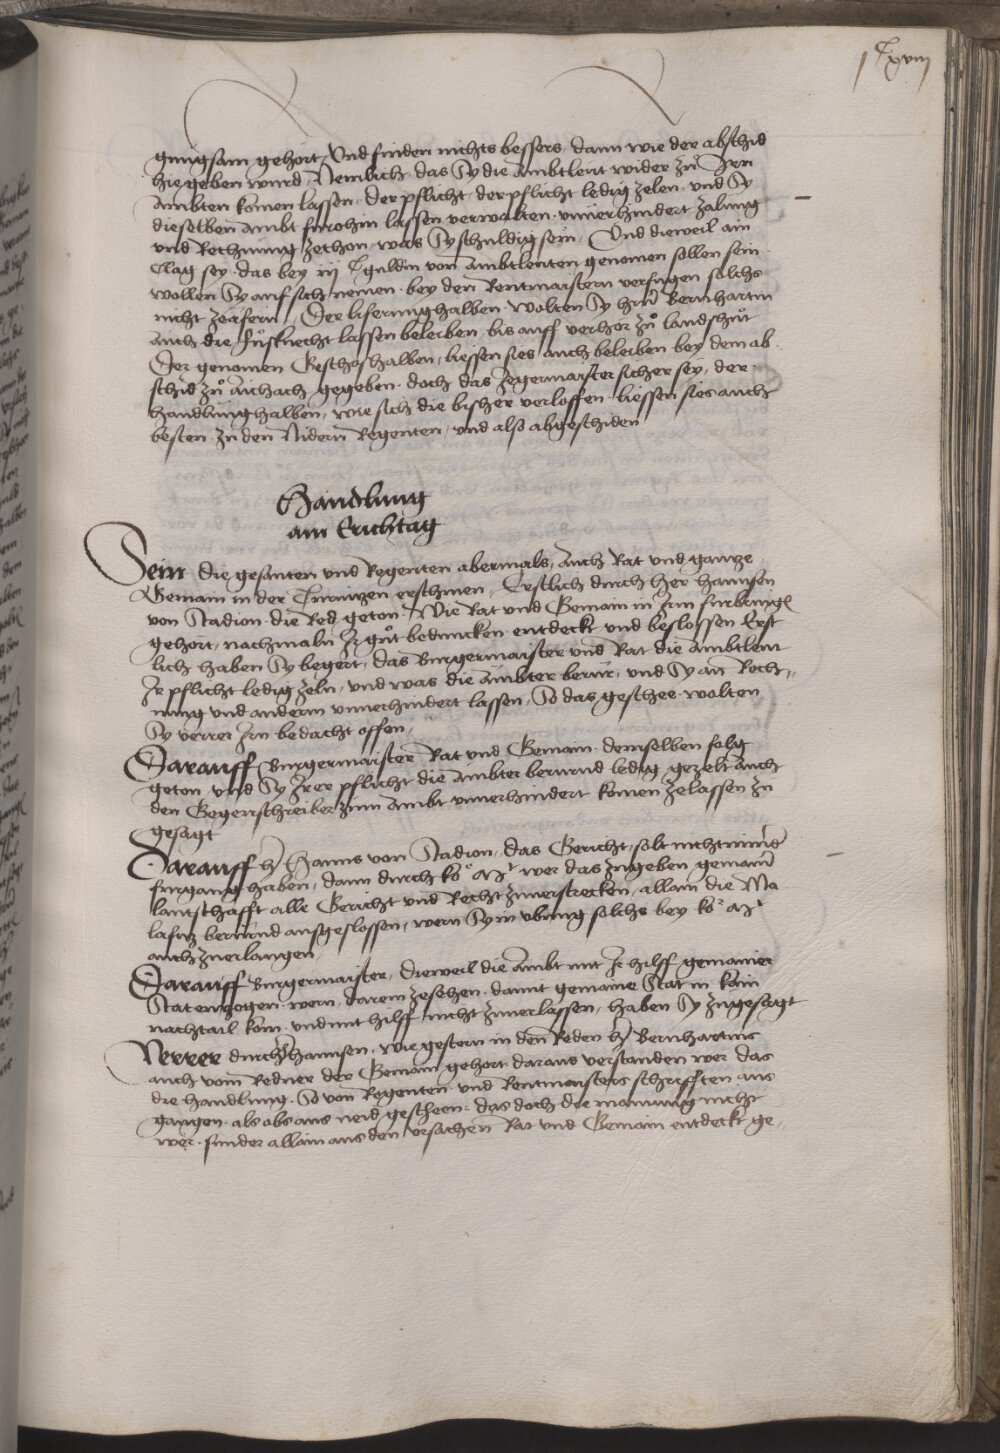 Cxviij
gnugsam gehort, Und finden nichts bessers, dann wie der abschid
hie geben wurd, Nemlich, das Sy die Ambtleut wider zu Irn
Ambten komen lassen, der pflicht, der pflicht ledig zelen, und Sy
dieselben Ambt furohin lassen verwalten, unverhindert zalung
und Rechnung zethon, was Sy schuldig sein, Und dieweil ain
Clag sey, das bey iij C guldin von Ambtleuten genomen sollen sein
wollen Sy auf sich nemen, bey den Rentmaistern verfugen solchs
nicht zeäfern, Der lifrung halben, wolten Sy hern Bernhartin
auch die Fuſknecht lassen beleiben, bis auff verhör zu landshut
Der genomen Geschos halben, liessen sies auch beleiben bey dem ab
schid zu Aichach gegeben, doch das Zegermaister sicher sey, der
handlung halben, wie sich die bisher verloffen, liessen sies auch
besten zu den Nidern Regenten, und also abgeschiden
Handlung
am Erichtag
Sein die gesanten und Regenten abermals, Auch Rat und gantze
Gemain in der erschinen, Erstlich durch Her Hannsen
von Stadion die Red geton, Wie Rat und Gemain in Irm furbringen
gehort, nachmaln Ir gut beduncken entdeckt und beslossen Erst
lich haben Sy begert, das Burgermaister und Rat die Ambtleut
Ir pflicht ledig zeln, und was die Ambter berür, und Sy an Rech
nung und anderm unverhindert lassen, So das geschee wolten
Sy verrer Irn bedacht offen,
Darauff Burgermaister Rat und Gemain demselben folg
geton und Sy Irer pflicht die Ambter berurnd ledig gezelt auch
den Gegenschreiber zum Ambt unverhindert komen zelassen zu
gesagt
Darauff her Hanns von Stadion, das Gericht, solt nichtminder
furgang haben, dann durch ko Mt wer das zugeben gemainer
lantschafft alle Gericht und Recht zuuerstrecken, allain die Ma
lafitz berurnd ausgeslossen, wern Sy in ubung solchs bey ko Mt
auch zuerlangen
Darauff Burgermaister, Dieweil die Ambt mit Ir hilff gemainer
Stat entzogen wern, darein zesehen, damit gemaine Stat in kain
nachtail kom, und mit hilff nicht zuuerlassen, haben Sy zugesagt
Verrer durch her Hannsen, wie gestern in den Reden her Bernhartins
auch vom Redner der Gemain gehort, daraus verstanden wer das
die handlung, So von Regenten und Rentmaisters schrifften aus
gangen, als ob aus neid gescheen, das doch die mainung nicht
wer, sunder allain aus den ursachen Rat und Gemain entdeckt ge